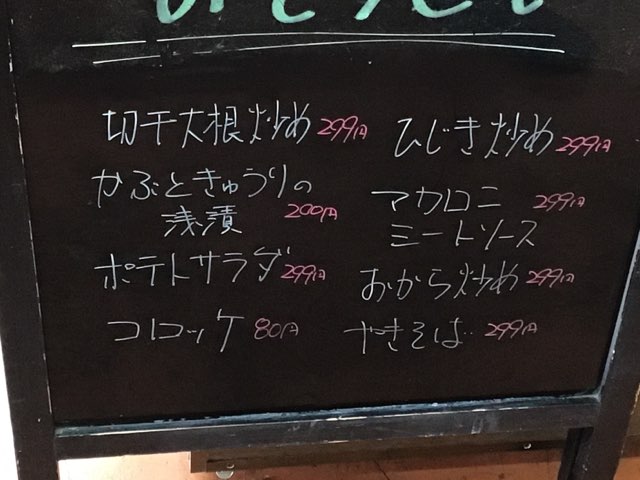 切干大根炒め 299円
かぶときゅうりの
浅漬 200円
ポテトサラダ 299円
コロッケ 80円
ひじき炒め 299円
マカロニ 299円
ミートソース
おから炒め 299円
やきそば 299円